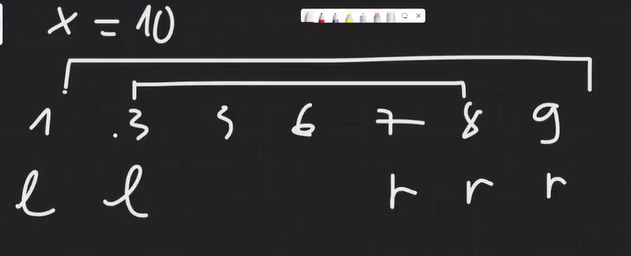 x = 10
1 .3 3 6 7 8 9
l l r r r